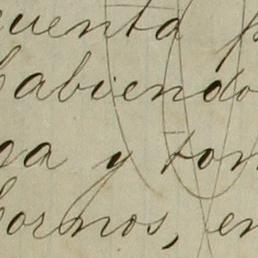 cuenta p
Cabiendo
ga y tom
Cornos, en